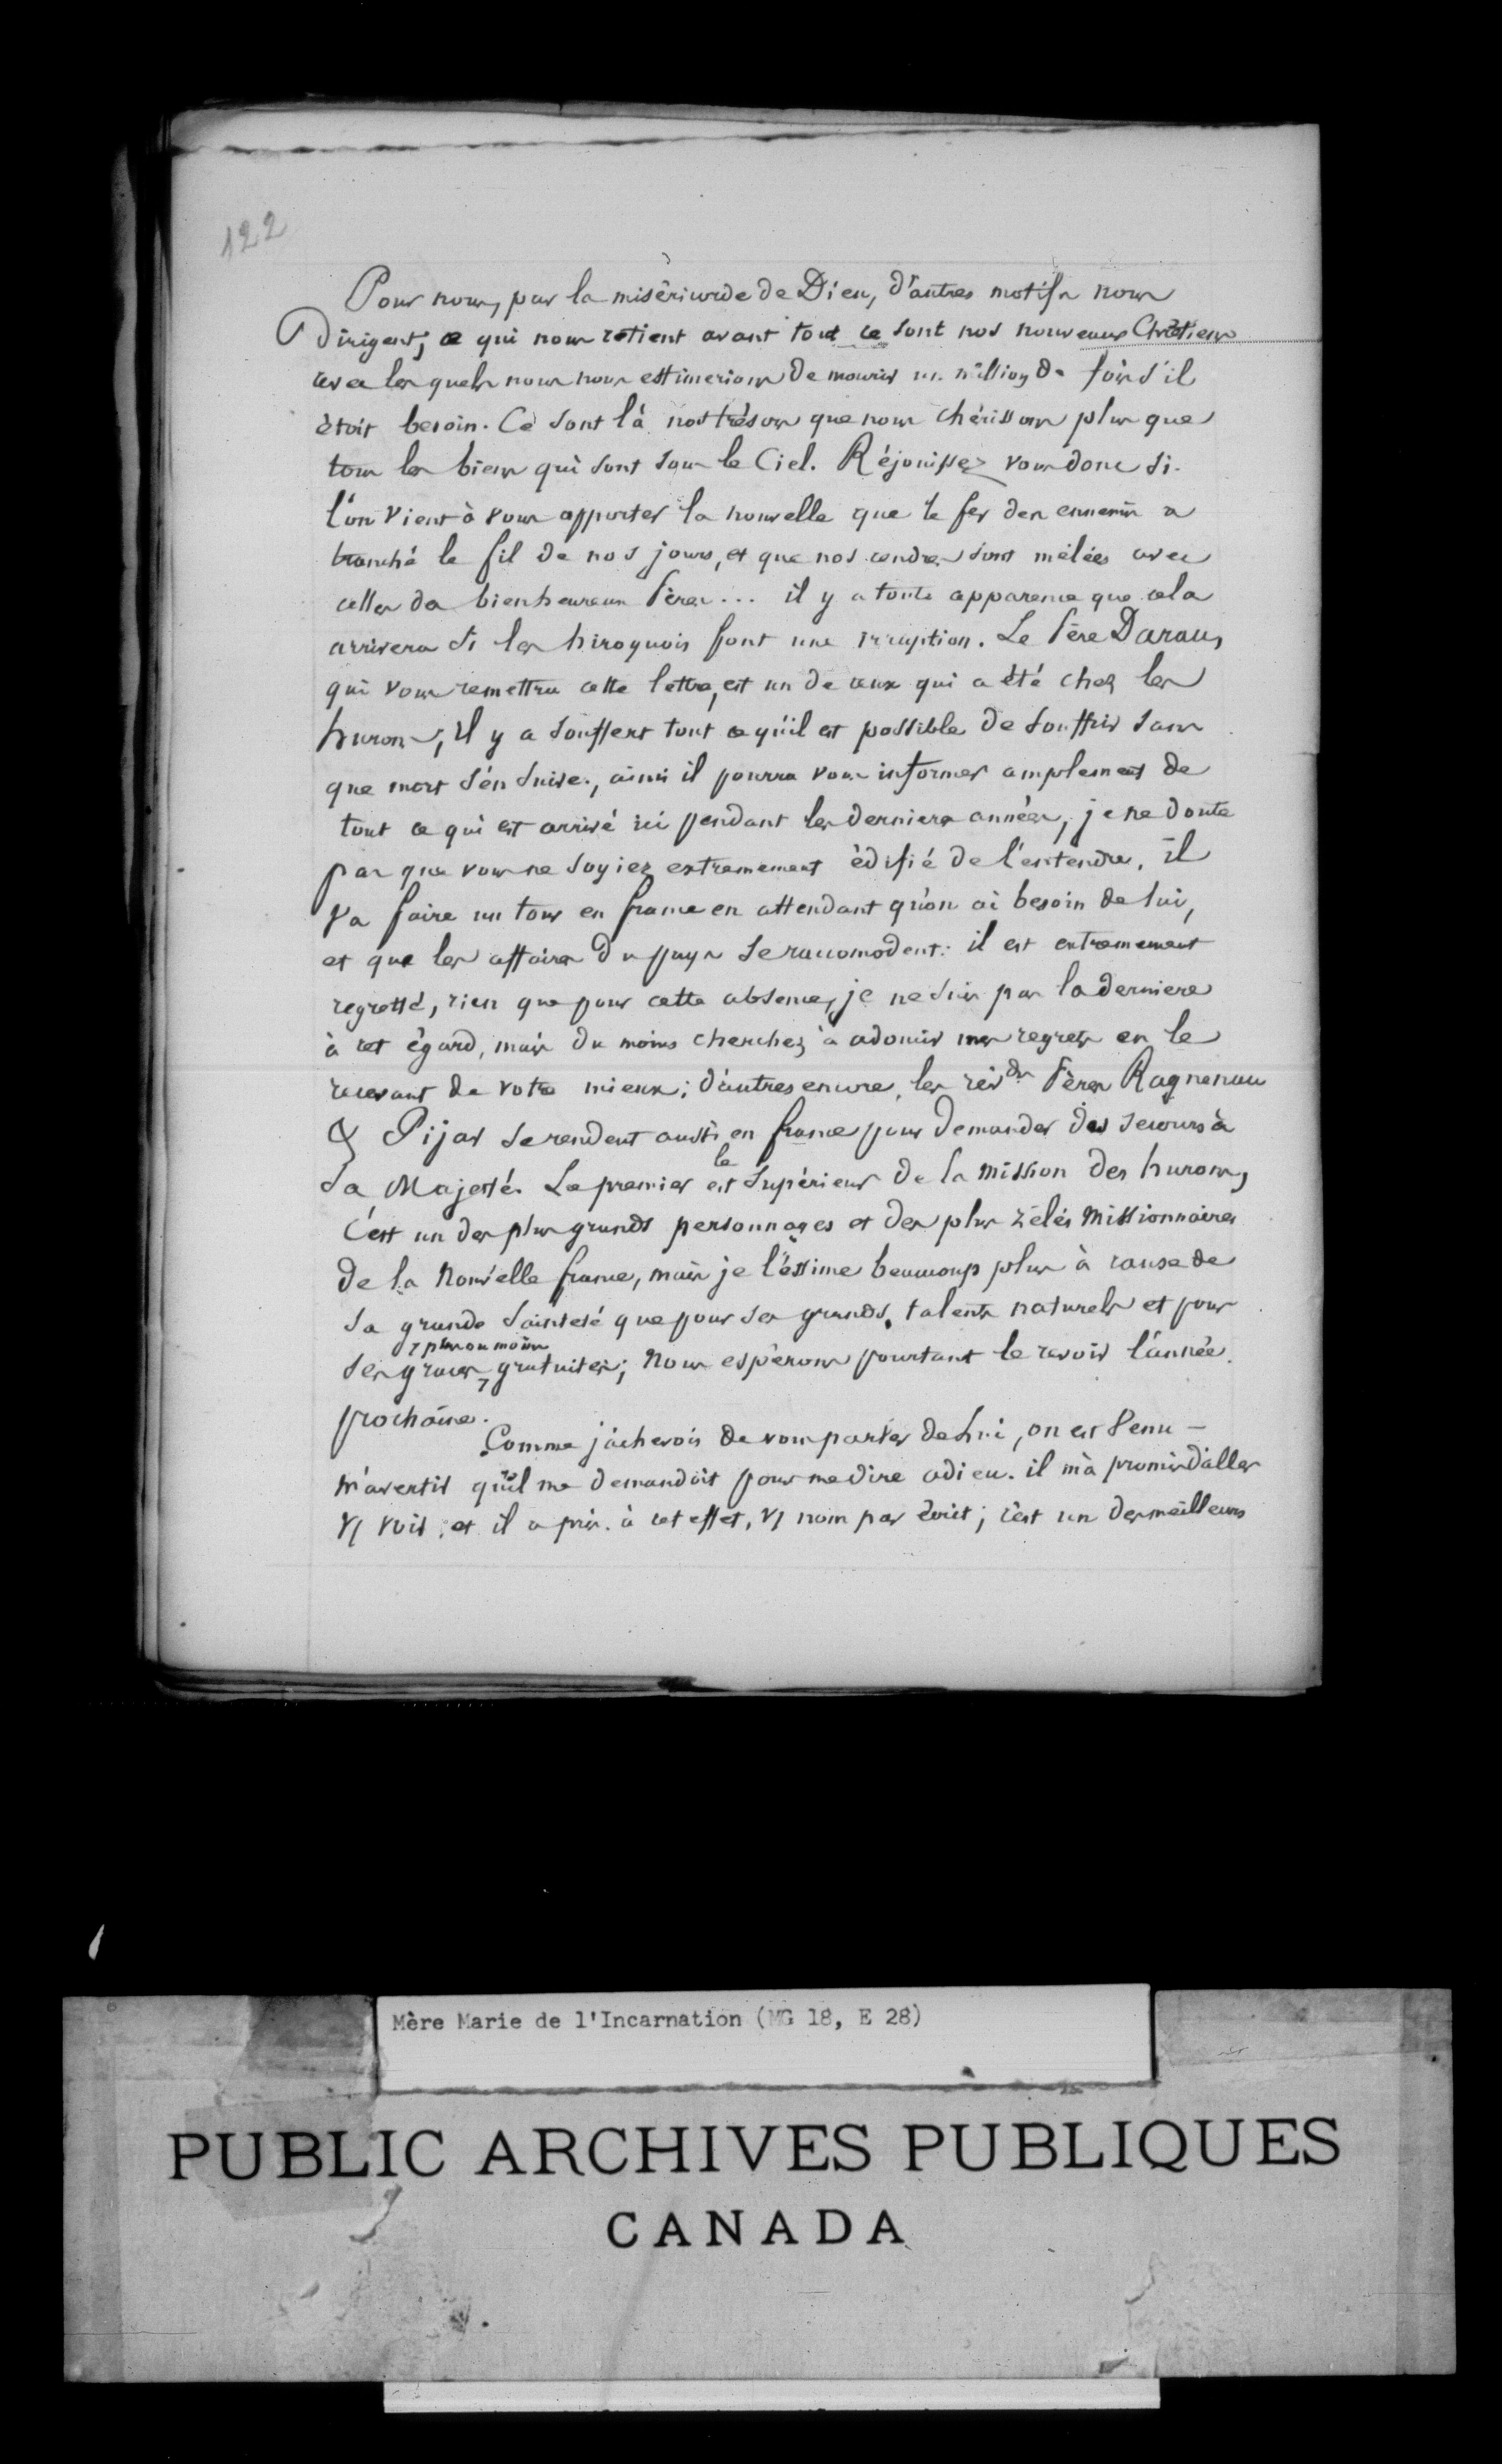 122
Pour nous, par la miséricorde de Dieu, d'autres motifs nous
Dirigent; ce qui nous rétient avant tout ce sont nos nouveaux Chrétiens
avec les quels nous nous estimerions de mourir un million de fois s'il
étoit besoin. Ce sont là nos trésors que nous chérissons plus que
tous les biens qui sont sous le Ciel. Réjouissez vous donc si
l'on vient à vous apporter la nouvelle que le fer des ennemis a
tranché le fil de nos jours, et que nos cendres sont mêlées avec
celles de bienheureux Pères... il y a toute apparence que cela
arrivera si les hiroquois font une irruption. Le Père Daraux,
qui vous remettra cette lettre, est un de ceux qui a été chez les
hurons, il y a souffert tout ce qu'il est possible de souffrir sans
que mort s'en suive, ainsi il pourra vous informer amplement de
tout ce qui est arrivé ici pendant les dernieres années, je ne doute
pas que vous ne soyiez extremement édifié de l'entendre, il
va faire un tour en france en attendant qu'on ai besoin de lui,
et que les affaires du pays se raccomodent: il est extremement
regretté, rien que pour cette absence, je ne suis pas la derniere
à cet égard, mais du moins cherchez à adoucir mes regrets en le
recevant de votre mieux; d'autres encore, les rév.ds Pères Ragnenau
& Pijar se rendent aussi en france pour demander des secours à
Sa Majesté. Le premier est le Supérieur de la mission des hurons,
c'est un des plus grands personnages et des plus zélés Missionnaires
de la Nouvelle france, mais je l'estime beaucoup plus à cause de
sa grande sainteté que pour ses grands talents naturels et pour
ses graces plus ou moins gratuites; nous espérons pourtant le revoir l'année
prochaine.
Comme j'achevois de vous parler de lui, on est venu
m'avertir qu'il me demandoit pour me dire adieu. il m'à promis d'aller
vs voir, et il a pris à cet effet, vs nom par écrit; c'est un des meilleurs
Mère Marie de l'Incarnation (MG 18, E 28)
PUBLIC ARCHIVES PUBLIQUES
CANADA